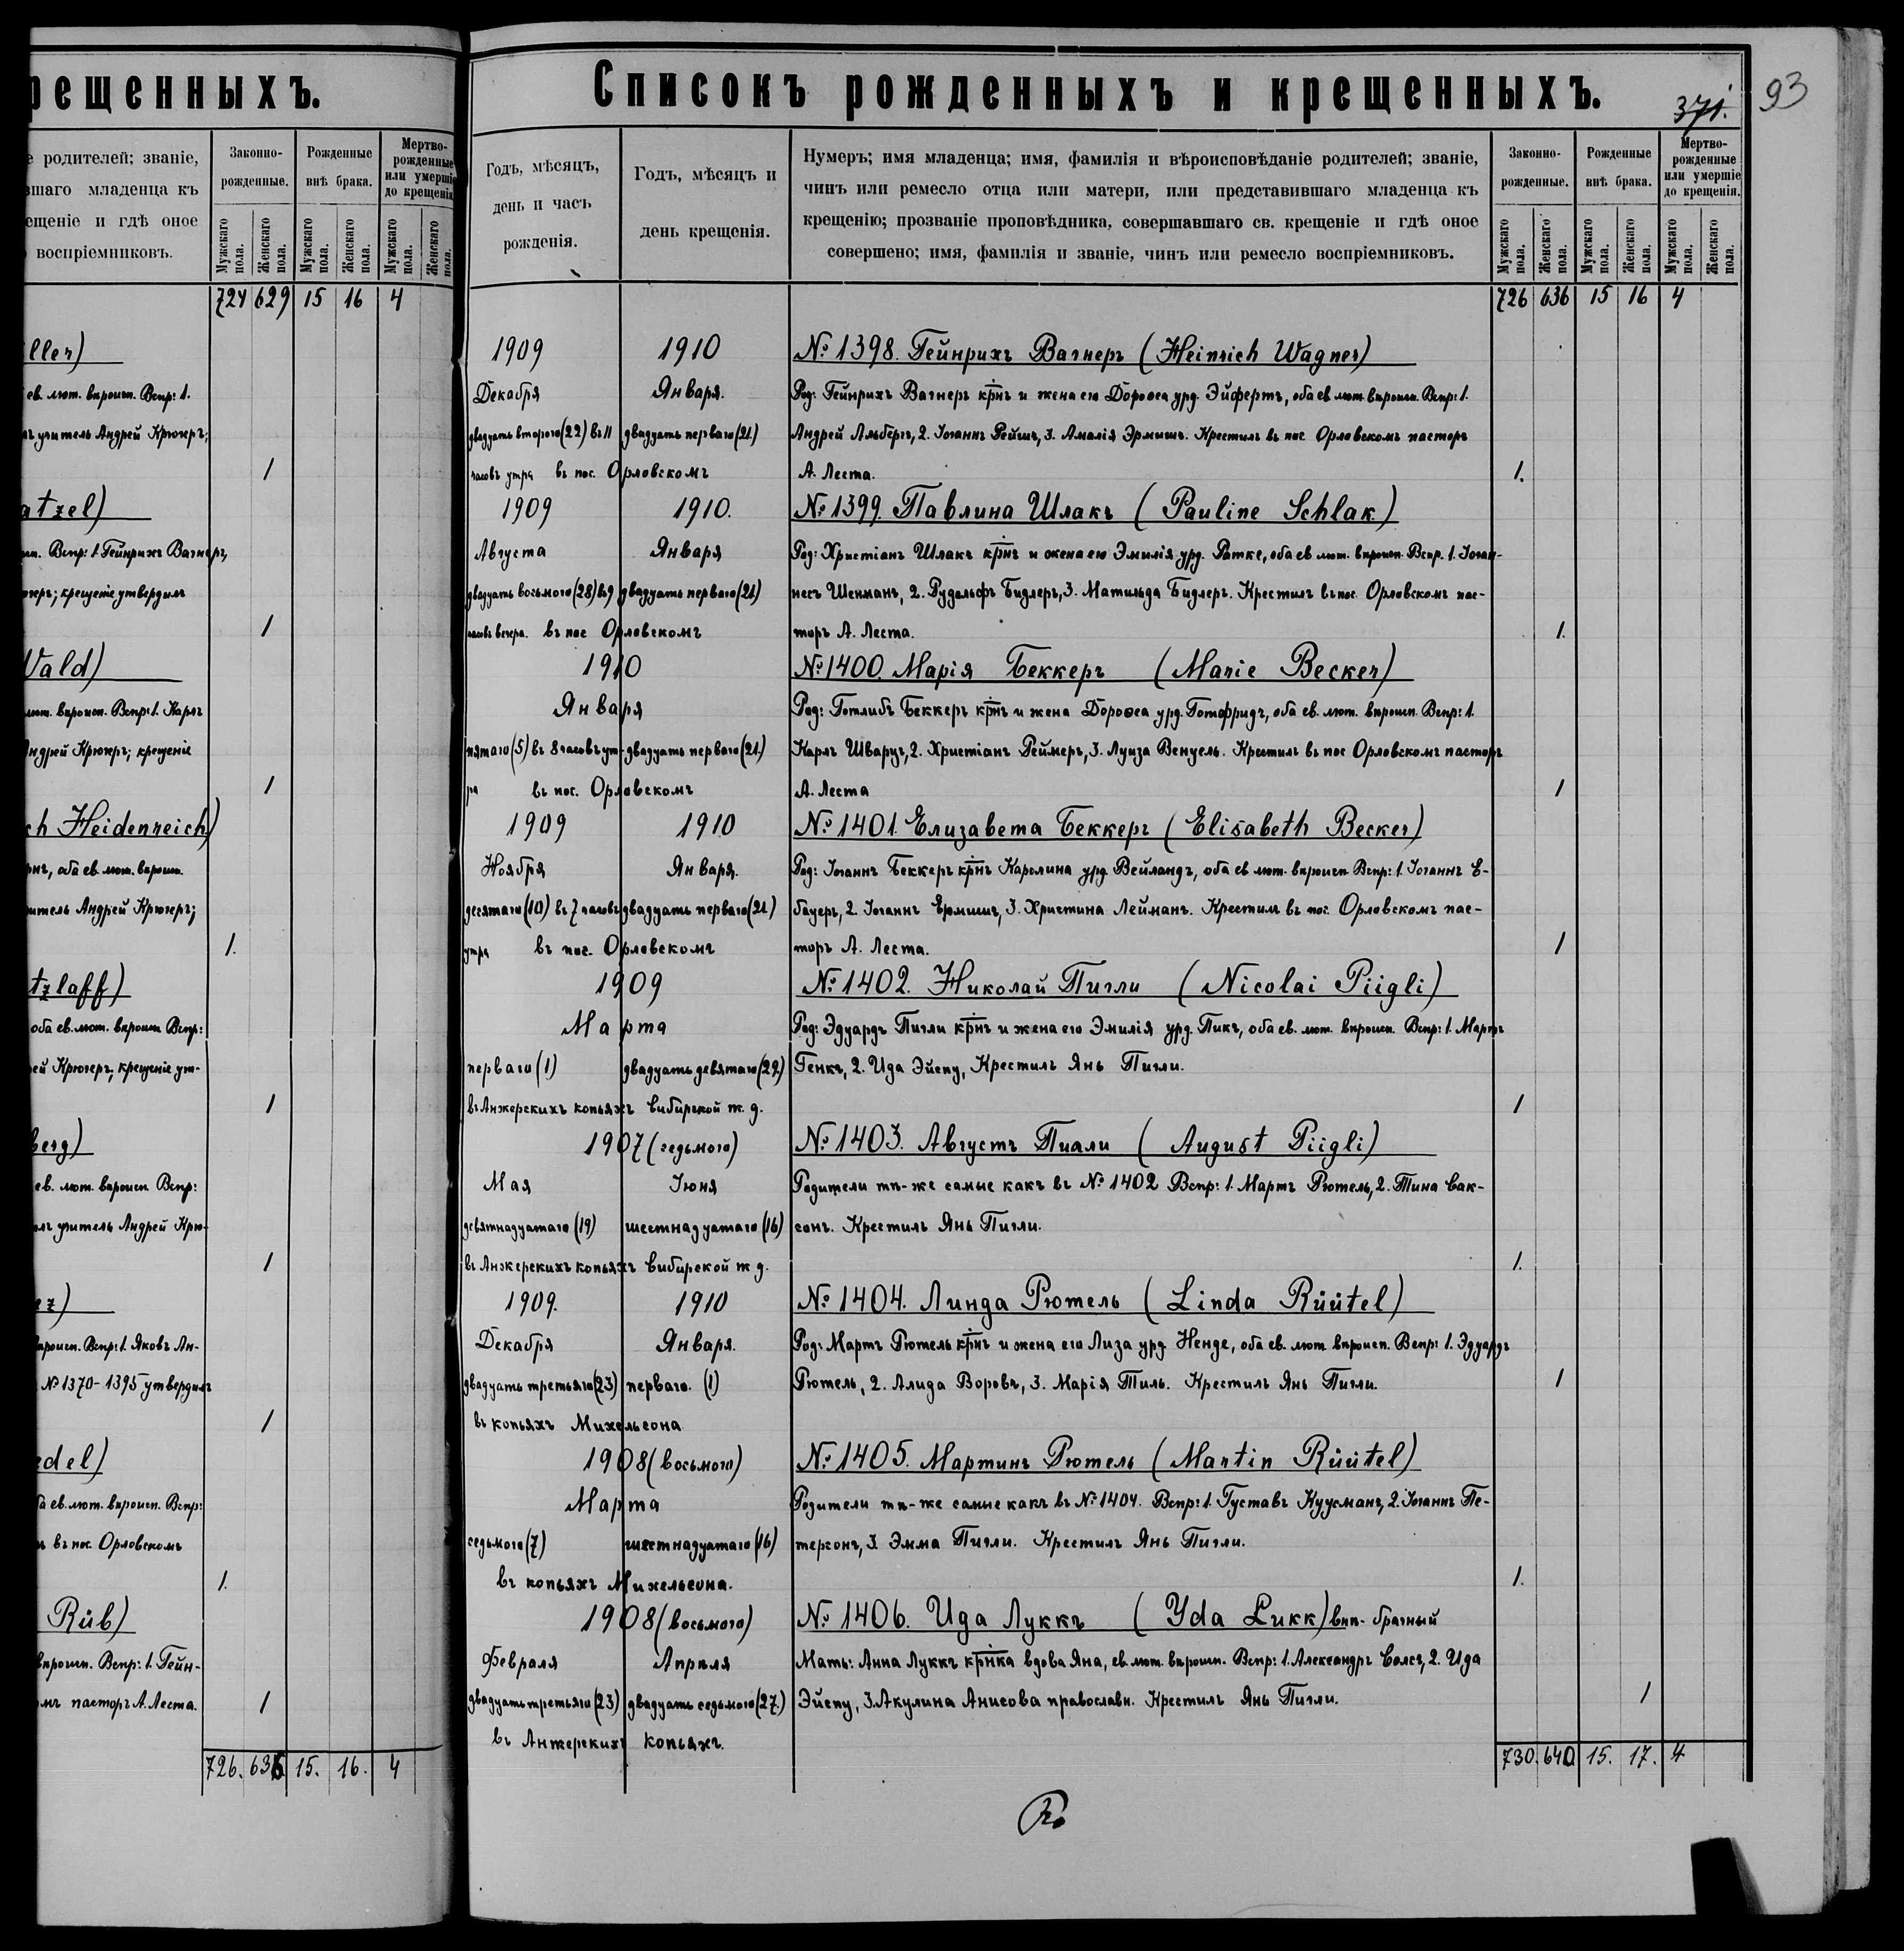 рещенныхъ.
е родителей; званіе,
вшаго младенца къ
ещеніе и гдѣ оное
воспріемниковъ.
Законно-рожденные.
Рожденные внѣ брака.
Мертво-рожденные или умершіе до крещенія.
Мужскаго пола. Женскаго пола. Мужскаго пола. Женскаго пола. Мужскаго пола. Женскаго пола.
724 629 15 16 4
ller)
ев. лют. вѣроисп. Вспр: 1.
учитель Андрей Крюгеръ;
1
atzel)
Вспр: 1. Гейнрихъ Вагнеръ,
крещеніе утвердилъ
1
Wald)
лют. вѣроисп. Вспр: 1. Карлъ
Андрей Крюгеръ; крещеніе
1
ch Heidenreich)
оба ев. лют. вѣроисп.
учитель Андрей Крюгеръ;
1.
tzlaff)
оба ев. лют. вѣроисп. Вспр:
ей Крюгеръ, крещеніе ут-
1
berg)
ев. лют. вѣроисп. Вспр:
учитель Андрей Крю-
1
ez)
вѣроисп. Вспр: 1. Яковъ Ан-
№ 1370-1395 утвердилъ
1
edel)
ба ев. лют. вѣроисп. Вспр:
въ пос. Орловскомъ
1.
Rüb)
вѣроисп. Вспр: 1. Гейн-
омъ пасторъ А. Леста.
1
726. 636 15. 16. 4
Списокъ рожденныхъ и крещенныхъ.
371.
93
Годъ, мѣсяцъ,
день и часъ
рожденія.
Годъ, мѣсяцъ и
день крещенія.
Нумеръ; имя младенца; имя, фамилія и вѣроисповѣданіе родителей; званіе,
чинъ или ремесло отца или матери, или представившаго младенца къ
крещенію; прозваніе проповѣдника, совершавшаго св. крещеніе и гдѣ оное
совершено; имя, фамилія и званіе, чинъ или ремесло воспріемниковъ.
Законно-рожденные.
Рожденные внѣ брака.
Мертво-рожденные или умершіе до крещенія.
Мужскаго пола. Женскаго пола. Мужскаго пола. Женскаго пола. Мужскаго пола. Женскаго пола.
726 636 15 16 4
1909 1910 № 1398. Гейнрихъ Вагнеръ (Heinrich Wagner)
Декабря Января. Род: Гейнрихъ Вагнеръ крнъ и жена его Дороѳеа урд. Эйфертъ, оба ев лют. вѣроисп. Вспр: 1.
двадцать второго (22) въ 11 двадцать перваго (21.) Андрей Альбергъ, 2. Іоганнъ Рейшъ, 3. Амалія Эрмишъ. Крестилъ въ пос. Орловскомъ пасторъ
часовъ утра въ пос. Орловскомъ А. Леста. 1.
1909 1910. № 1399 Павлина Шлакъ (Pauline Schlak.)
Августа Января Род: Христіанъ Шлакъ крнъ и жена его Эмилія урд. Ратке, оба ев лют. вѣроисп. Вспр. 1. Іоган-
двадцать восьмого (28) въ 9 двадцать перваго (21) несъ Шекманъ, 2. Рудольфъ Бидлеръ, 3. Матильда Бидлеръ. Крестилъ въ пос. Орловскомъ пас-
часовъ вечера. въ пос Орловскомъ торъ А. Леста. 1.
1910 № 1400. Марія Беккеръ (Marie Becker)
Января Род: Готлибъ Беккеръ крнъ и жена Дороѳеа урд. Готфридъ, оба ев. лют. вѣроисп. Вспр: 1.
пятаго (5) въ 8 часовъ ут- двадцать перваго (21.) Карлъ Шварцъ, 2. Христіанъ Реймеръ, 3. Луиза Венцель. Крестилъ въ пос Орловскомъ пасторъ
ра въ пос. Орловскомъ А. Леста 1
1909 1910 № 1401. Елизавета Беккеръ (Elisabeth Becker)
Ноября Января. Род: Іоганнъ Беккеръ крнъ Каролина урд. Вейландъ, оба ев лют. вѣроисп Вспр: 1. Іоганнъ Е-
десятаго (10) въ 7 часовъ двадцать перваго (21) бауеръ, 2. Іоганнъ Ермишъ, 3. Христина Лейманъ. Крестилъ въ пос. Орловскомъ пас-
утра въ пос. Орловскомъ торъ А. Леста. 1
1909 № 1402. Николай Пигли (Nicolai Piigli)
Марта Род: Эдуардъ Пигли крнъ и жена его Эмилія урд. Пикъ, оба ев. лют. вѣроисп. Вспр: 1. Мартъ
перваго (1) двадцать девятаго (29.) Генкъ, 2. Ида Эйепу, Крестилъ Янь Пигли.
въ Анжерскихъ копьяхъ Сибирской ж. д. 1
1907 (седьмого) № 1403. Августъ Пигли (August Piigli)
Мая Іюня Родители тѣ-же самые какъ въ № 1402 Вспр: 1. Мартъ Рютель, 2. Тина Сак-
девятнадцатаго (19) шестнадцатаго (16) сонъ. Крестилъ Янь Пигли.
въ Анжерскихъ копьяхъ Сибирской ж д. 1.
1909. 1910 № 1404. Линда Рютель (Linda Rüütel)
Декабря Января. Род: Мартъ Рютель крнъ и жена его Лиза урд. Ненде, оба ев. лют. вѣроисп. Вспр: 1. Эдуардъ
двадцать третьяго (23) перваго. (1) Рютель, 2. Алида Воровъ, 3. Марія Тиль. Крестилъ Янь Пигли. 1
въ копьяхъ Михельсона
1908 (восьмого) № 1405. Мартинъ Рютель (Martin Rüütel)
Марта Родители тѣ-же самые какъ въ № 1404. Вспр: 1. Густавъ Куусманъ, 2. Іоганнъ Пе-
седьмого (7) шестнадцатаго (16) терсонъ, 3. Эмма Пигли. Крестилъ Янь Пигли.
въ копьяхъ Михельсона. 1.
1908 (восьмого) № 1406. Ида Луккъ (Yda Lukk) внѣ-брачный
Февраля Апрѣля Мать: Анна Луккъ крнка вдова Яна, ев. лют. вѣроисп. Вспр: 1. Александръ Солсъ, 2. Ида
двадцать третьяго (23) двадцать седьмого (27.) Эйепу, 3. Акулина Анисова православн. Крестилъ Янь Пигли. 1
въ Анжерскихъ копьяхъ.
730. 640 15. 17. 4